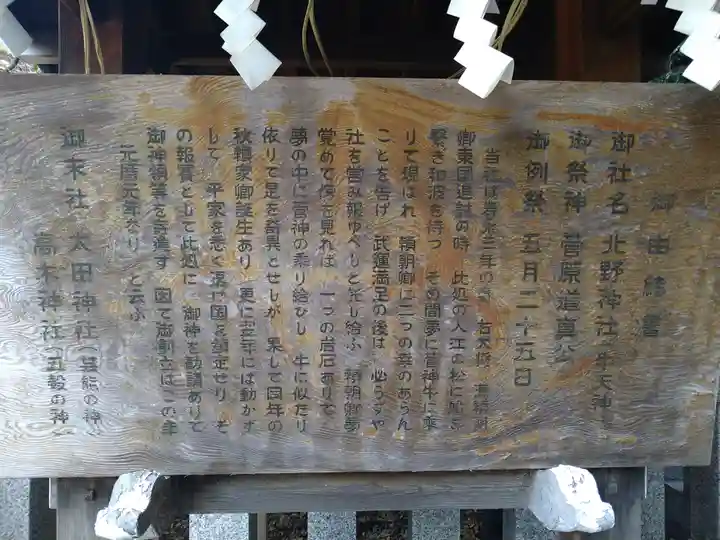 御由緒書
御社名 北野神社(牛天神
御祭神 菅原道真公
御例祭 五月二十五日
当社は寿永三年の 右大将 源頼朝
卿東国追討の時 此処の入江の松に船を
繋き和波を待つ その間夢に菅神牛に乗
りて現はれ 頼朝卿に二つの幸のあらん
ことを告げ 武運満足の後は 必らずや
社を営み報ゆべしと託し給ふ 頼朝卿夢
覚めて傍を見れば 一つの岩石ありて
夢の中に菅神の乗り給ひし 牛に似たり
依りて是を奇異とせしが 果して同年の
秋頼家卿誕生あり 更に翌年には動かず
して 平家を悉く 国を鎮定せり そ
の報賽として此処に 御神を勧請ありて
御神領等を寄進す 因て御創立はこの年
元暦元年なり と云ふ
御末社 太田神社(芸能の神)
高木神社(五穀の神)